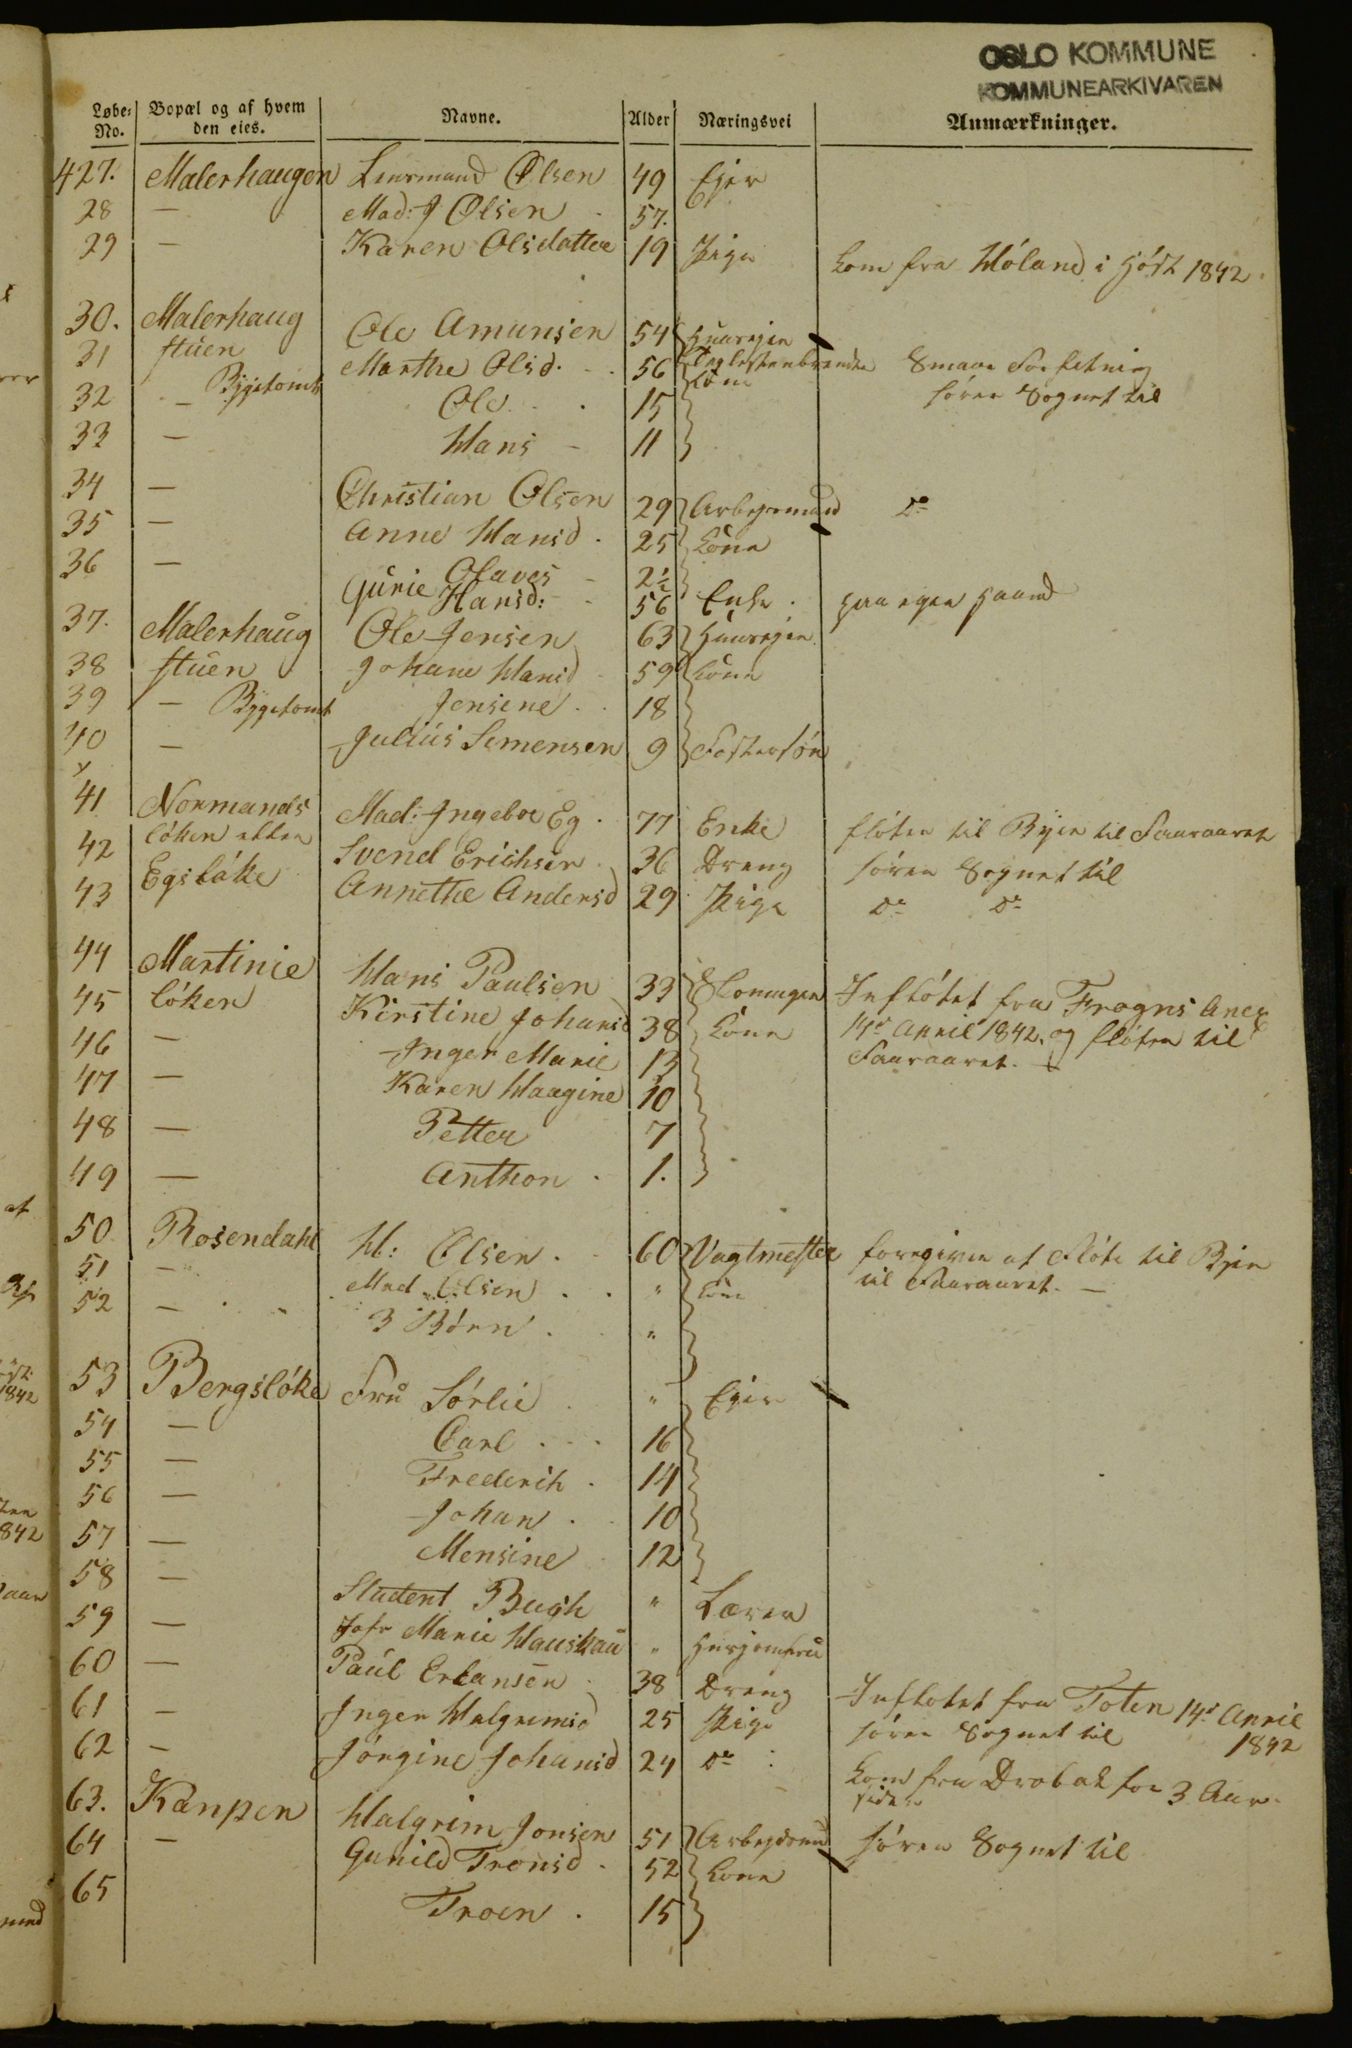 OSLO KOMMUNE
KOMMUNEARKIVAREN
Løbe- No. | Bopæl og af hvem den eies. | Navne. | Alder | Næringsvei | Anmærkninger.
427. Malerhaugen Olsen 49 Ejer
28 — Mad: J Olsen 57.
29 — Karen Olsdatter 19 Pige kom fra Höland i Höst 1842
30. Malerhaug Ole Amunsen 54 Huusejer
31 stuen Marthe Olsd. 56 Teglstenbrender Kone Smaae Forfatning
32 — Bygetomt Ole 15 hörer Sognet til
33 — Hans 11
34 — Christian Olsen 29 Arbejsmand Do
35 — Anne Hansd. 25 Kone
36 — Olaves 2½
Gurie Hansd: 56 Enke. paa egen Haand
37. Malerhaug Ole Jensen 63 Huusejer
38 stuen Johane Hansd 59 Kone
39 — Bygetomt Jensine 18
40 — Julius Simensen 9 Fostersön
41 Normands Mad: Ingebor Eg. 77 Enke flöter til Byen til Faaraaret
42 löken eller Svend Erichsen 36 Dreng hörer Sognet til
43 Egslöke Annethe Andersd 29 Pige Do Do
44 Martinie Hans Paulsen 33 Indflötet fra Frogns Anex
45 löken Kirstine Johansd 38 Kone 14d April 1842. og flöter til
46 — Inger Marie 13 Faaraaret. —
47 — Karen Haagine 10
48 — Petter 7
49 — Anthon 1.
50 Rosendahl H: Olsen. 60 Vagtmester foregiver at flöte til Byen
51 — Mad Olsen " Kone til Faaraaret. —
52 — 3 Börn. "
53 Bergslöke Fru Sörlie " Ejer
54 — Carl 16
55 — Frederik 14
56 — Johan 10
57 — Mensine 12
58 — Student Bugh " Lærer
59 — Jofr Marie Hauskau " Husjomfru
60 — Paul Erlansen 38 Dreng Indflötet fra Toten 14d April
61 — Inger Halgrimsd 25 Pige hörer Sognet til 1842
62 — Jörgine Johansd 24 Do Kom fra Drobak for 3 Aar
siden
63. Kampen Halgrim Jonsen 51 Arbejdsmd hörer Sognet til
64 — Gunild Tronsd. 52 Kone
65 Troen. 15